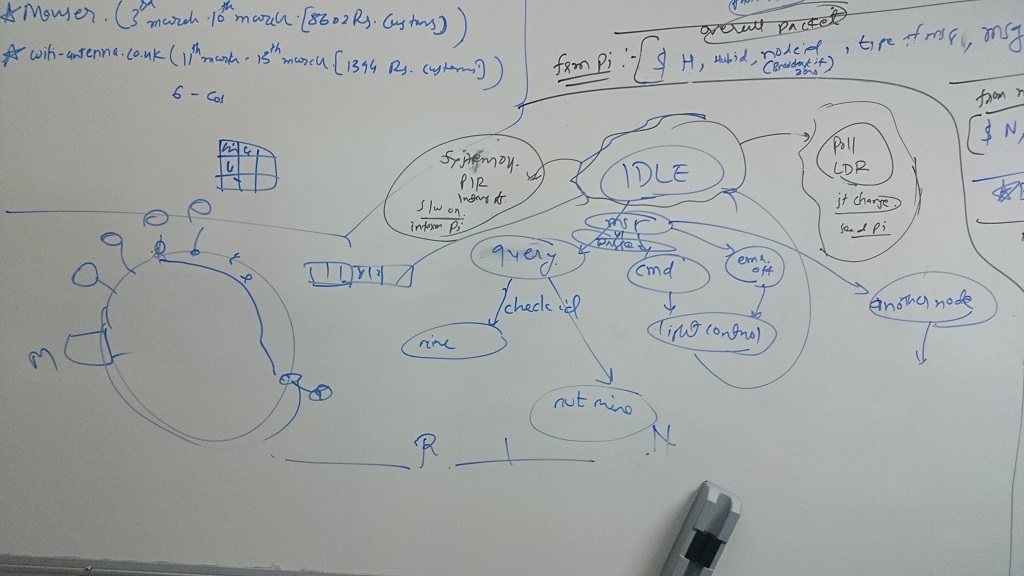 * Mouser. (3rd march - 10th march. [8602 Rs. Customs])
* wifi-antenna.co.uk (11th march - 13th march [1394 Rs. customs])
6 -
overall packet
from Pi :- { $ H, hubid, nodeid, type of msg, msg
(Broadcast if zero)
from
{ $ N,
System on.
PIR
S/w on
inform Pi
IDLE
Poll
LDR
if change
send Pi
msr
query
cmd
emr.
off
another node
check id
light control
mine
not mine
M
R
N